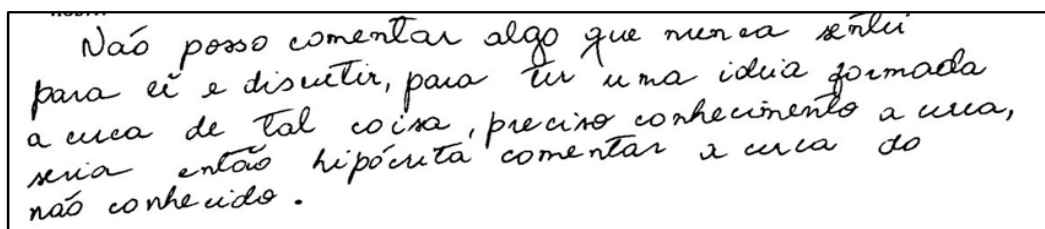 Não posso comentar algo que nunca senti
para ci e discutir, para ter uma ideia formada
a cerca de tal coisa, preciso conhecimento a cerca,
seria então hipócrita comentar a cerca do
não conhecido.